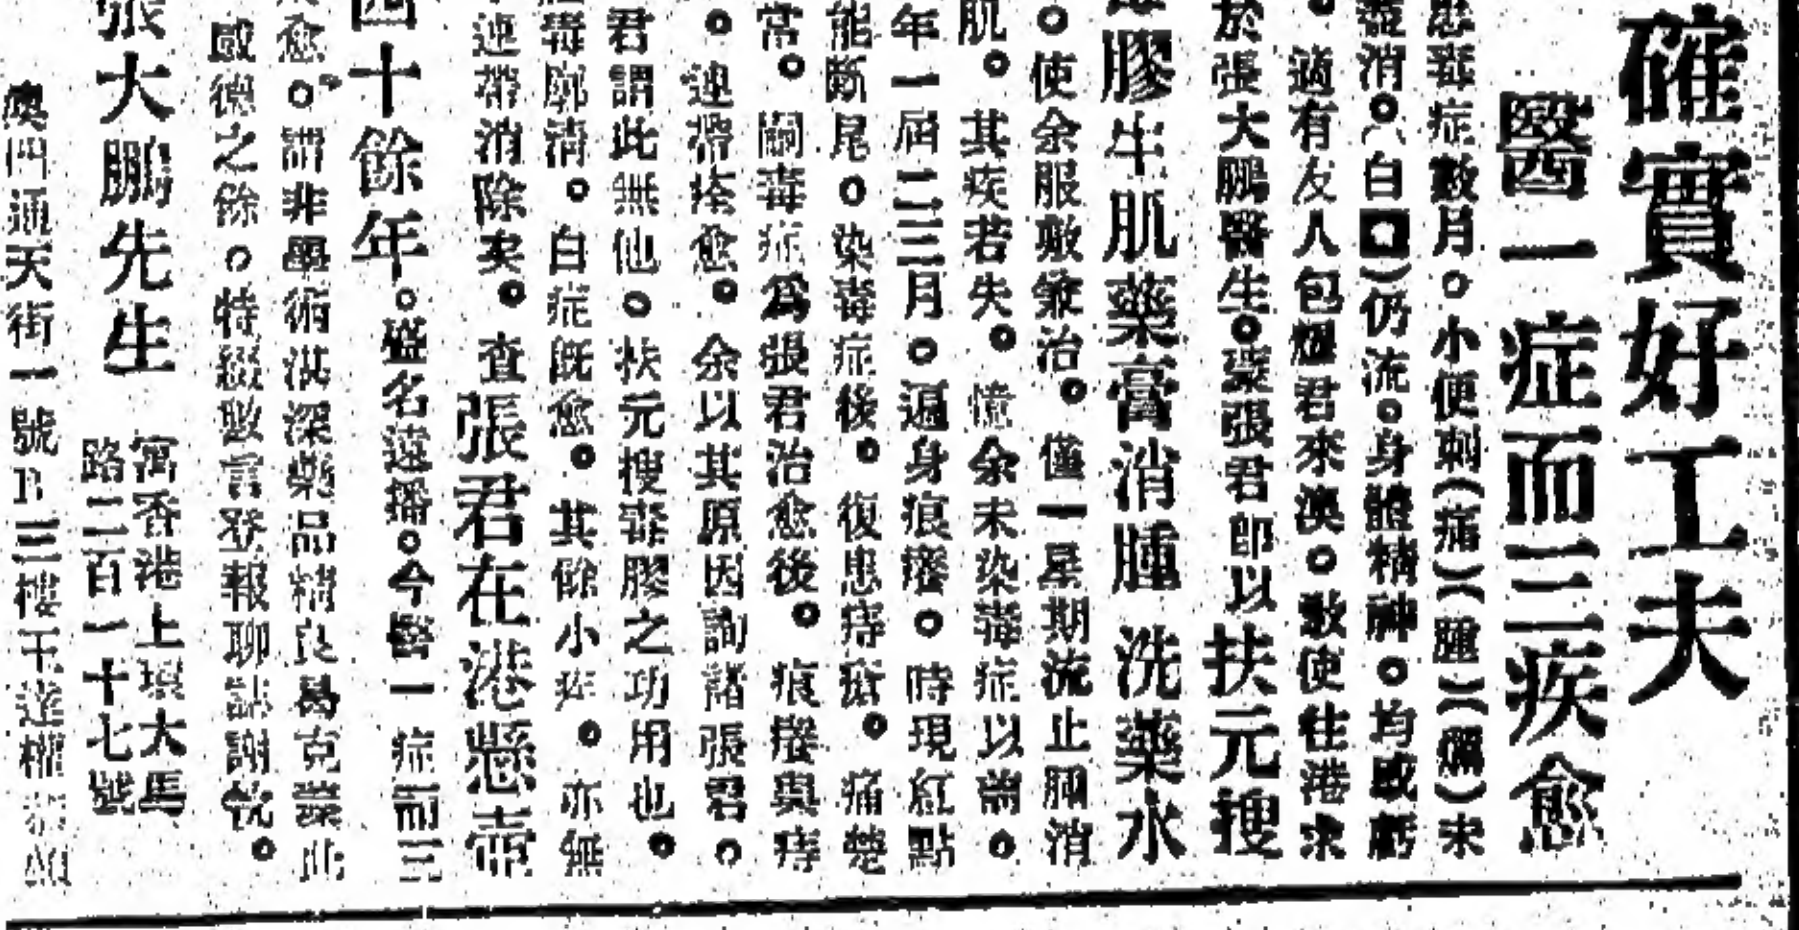 確實好工夫
醫一症而三疾愈
患毒症數月。小便刺(痛)(腫)(爛)未
盡消。(白口)仍流。身體精神。均感虧
。適有友人包煜君來澳。敦使往港求
於張大鵬醫生。蒙張君即以扶元搜
膠生肌藥膏消腫洗藥水
。使余服敷兼治。僅一星期流止腫消
肌。其疾若失。憶余未染毒症以前。
年一屆二三月。遍身痕癢。時現紅點
能斷尾。染毒症後。復患痔瘡。痛楚
常。嗣毒症為張君治愈後。痕癢與痔
。連帶痊愈。余以其原因詢諸張君。
君謂此無他。扶元搜毒膠之功用也。
毒廓清。白症既愈。其餘小疾。亦無
連帶消除矣。查張君在港懸壺
四十餘年。盛名遠播。今醫一症而三
愈。謂非學術湛深藥品精良曷克臻此
感德之餘。特綴數言登報聊誌謝忱。
張大鵬先生 寓香港上環大馬
路二百一十七號
澳門通天街一號B三樓王達權